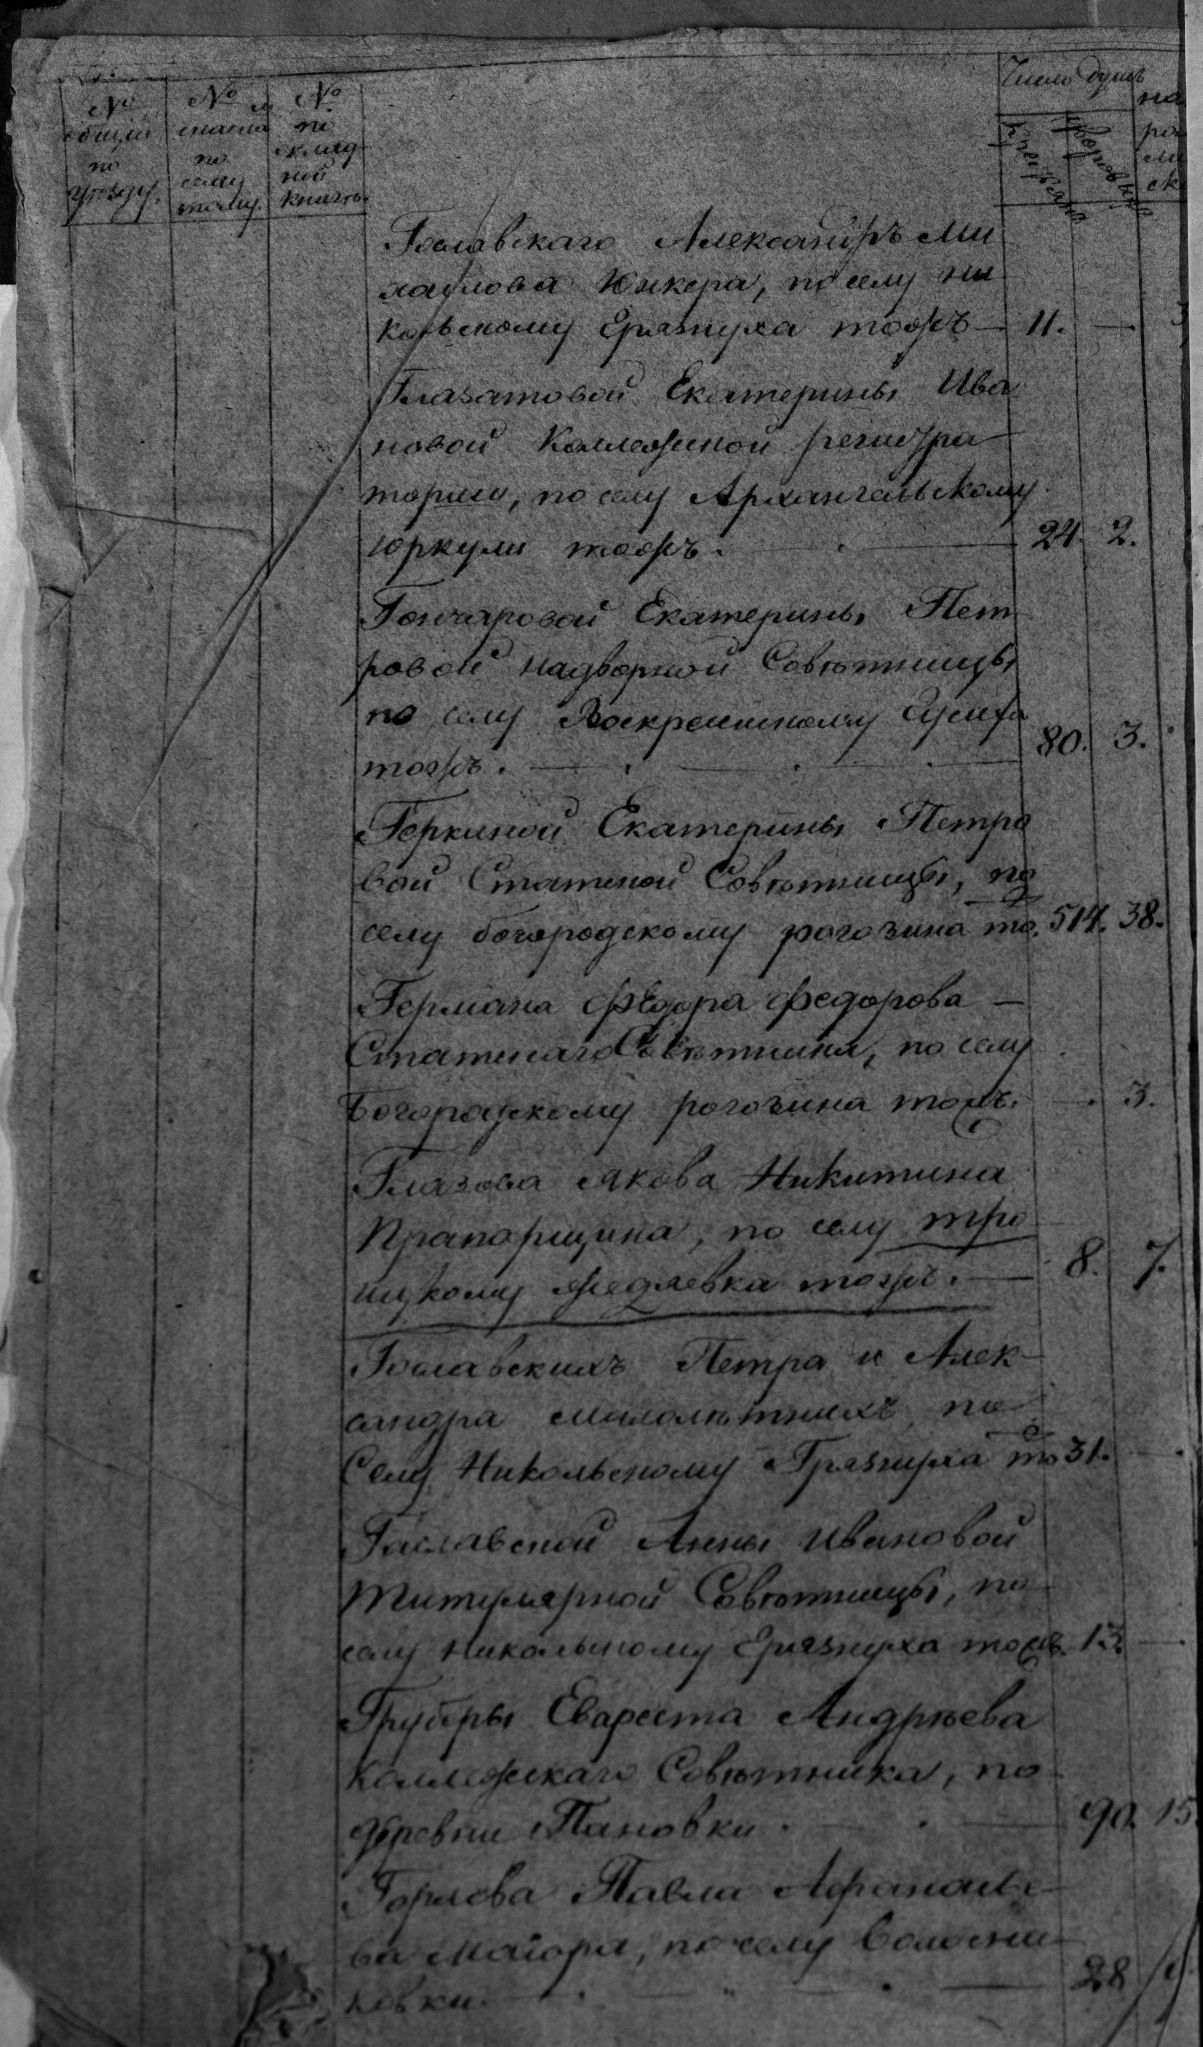 № общій по уѣзду.
№ по сему тому.
№ по оклад ной книгѣ.
Число душъ
Крестьянъ
дворовыхъ
на
Гославскаго Александръ Ми
хаилова Юнкера, по селу Ни
кольскому Грязнуха тожъ — 11. —
Глазатовой Екатерины Ива
новой Коллежской регистра
торши, по селу Архангельскому
Юркули тожъ. — 24. 2.
Гончаровой Екатерины Пет
ровой надворной Совѣтницы
по селу Воскресенскому
тожъ. — 80. 3.
Геркиной Екатерины Петро
вой Статской Совѣтницы, по
селу богородскому рогозина то. 514. 38.
Германа Федора Федорова —
Статскаго Совѣтника, по селу
Богородскому рогозина тожъ. — . 3.
Глазова Якова Никитина
Прапорщика, по селу тро
ицкому Жедяевка тожъ. — 8. 7.
Гославскихъ Петра и Алек
сандра малолѣтнихъ по
Селу Никольскому Грязнуха то 31. —
Гославской Анны Ивановой
Титулярной Совѣтницы, по
селу Никольскому Грязнуха тожъ. 13. —
Грубры Евареста Андрѣева
Коллежскаго Совѣтника, по
деревни Пановки. — 90. 15
Горлова Павла Афанасье
ва Маіора, по селу
ковки. — 28